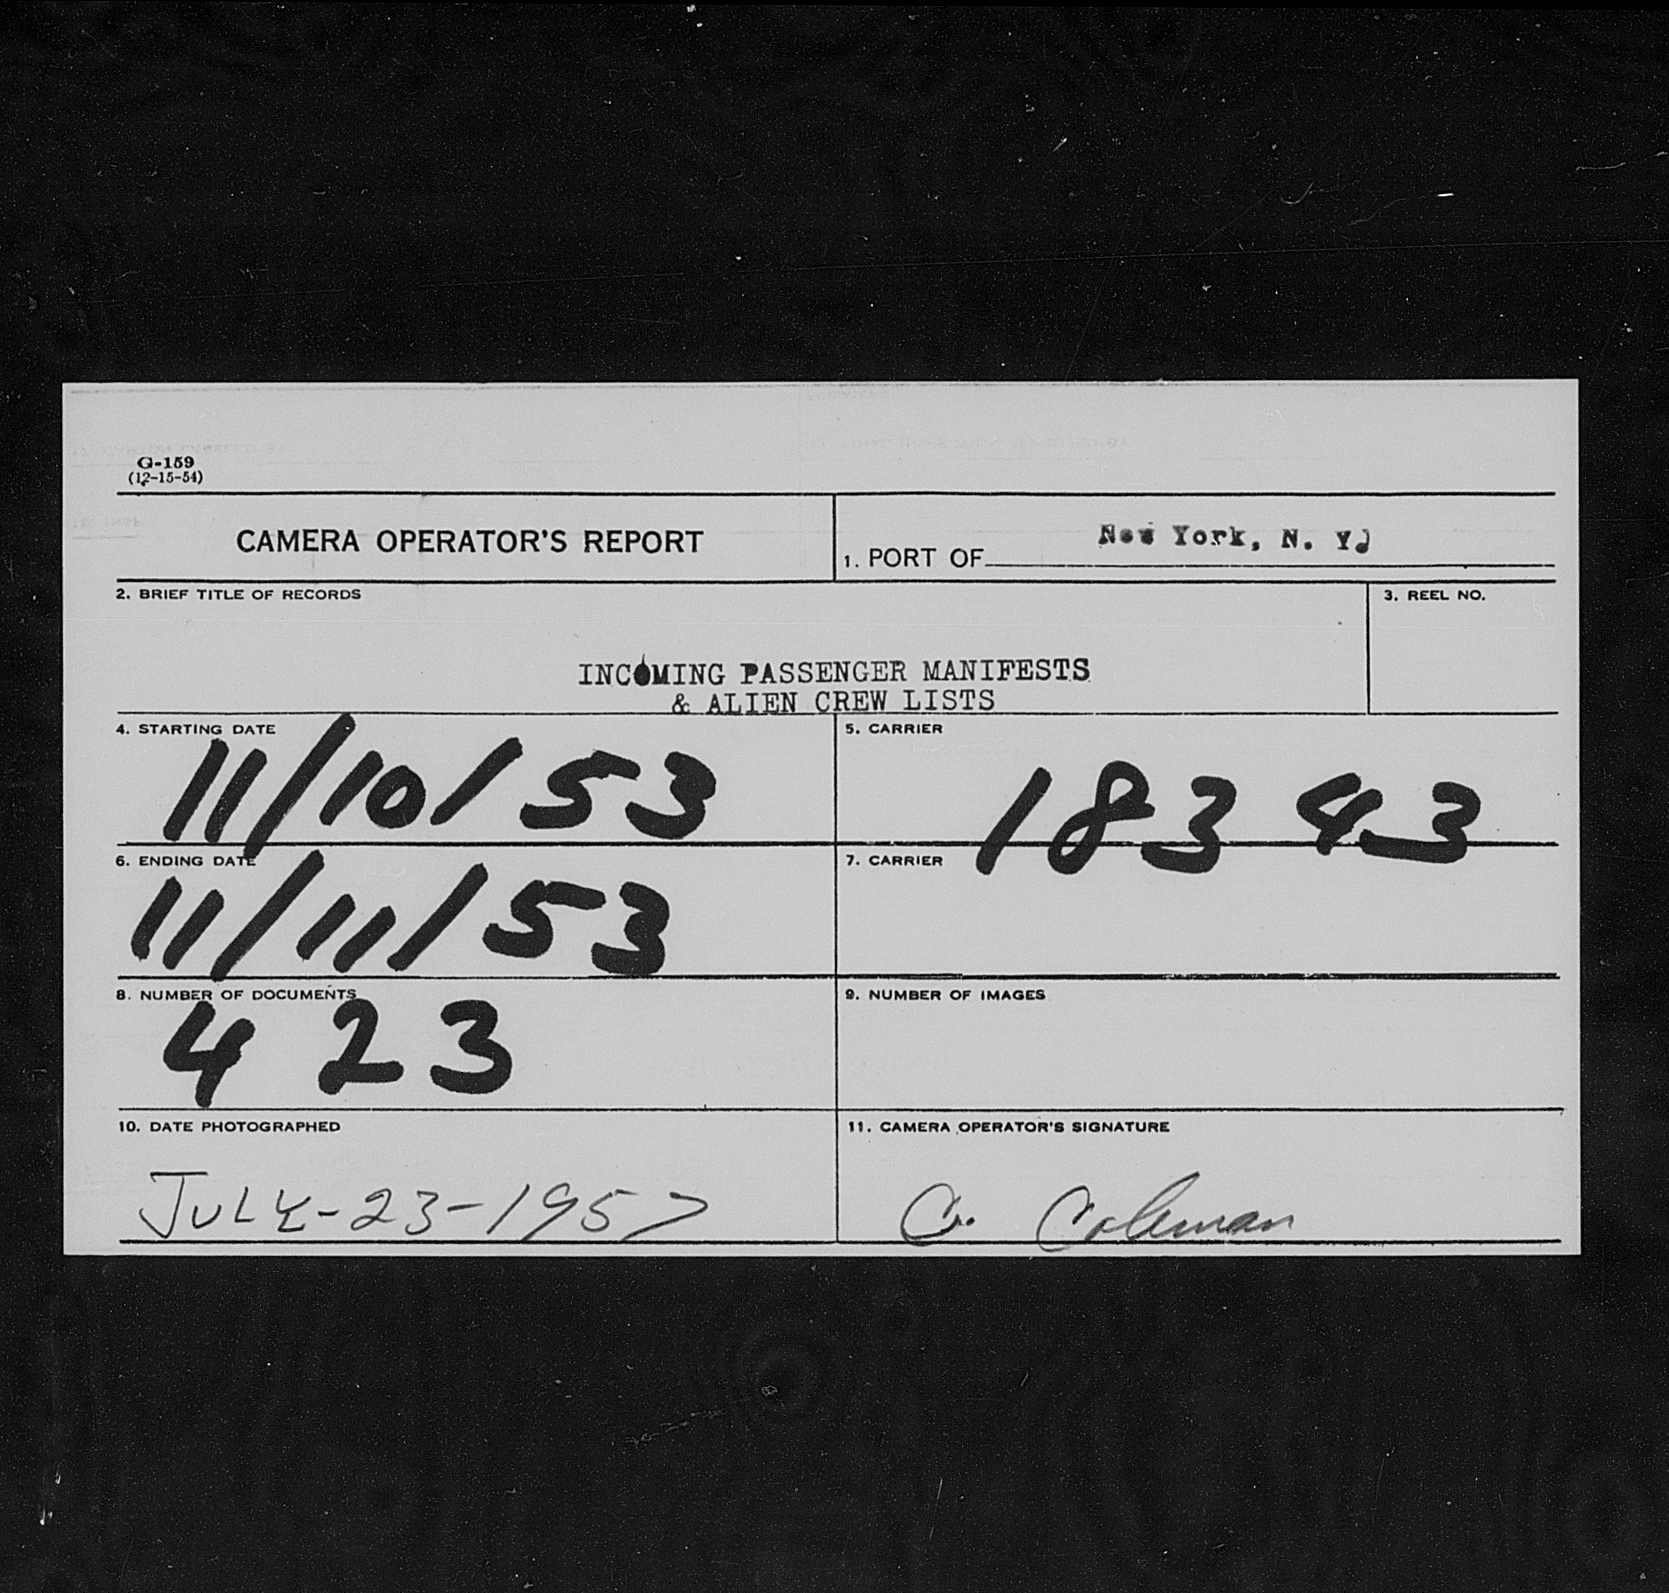 G-159
(12-15-54)
CAMERA OPERATOR'S REPORT
1. PORT OF New York, N. Y.
2. BRIEF TITLE OF RECORDS
3. REEL NO.
INCOMING PASSENGER MANIFESTS
& ALIEN CREW LISTS
4. STARTING DATE
11/10/53
5. CARRIER
18343
6. ENDING DATE
11/11/53
7. CARRIER
8. NUMBER OF DOCUMENTS
423
9. NUMBER OF IMAGES
10. DATE PHOTOGRAPHED
JULY-23-1957
11. CAMERA OPERATOR'S SIGNATURE
C. Coleman